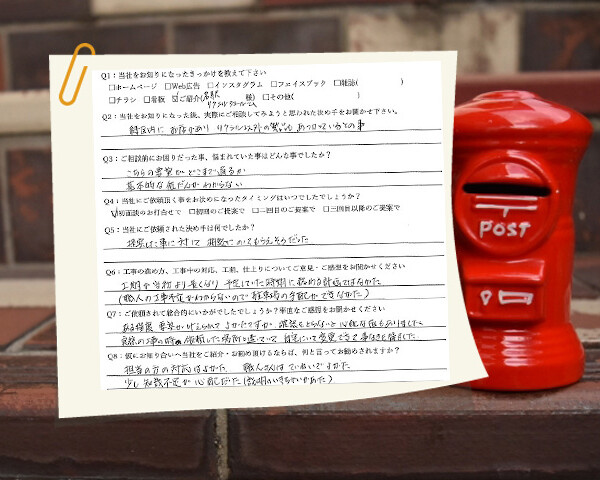 Q1：当社をお知りになったきっかけを教えて下さい
□ホームページ □Web広告 □インスタグラム □フェイスブック □雑誌( )
□チラシ □看板 ☑ご紹介( 様) □その他( )
Q2：当社をお知りになった後、実際にご相談してみようと思われた決め手をお聞かせ下さい。
緑区内に お店があり リクシル以外の製品も あつかっているとの事
Q3：ご相談前にお困りだった事、悩まれていた事はどんな事でしたか？
こちらの要望が どこまで通るか
基本的な値だんがわからない
Q4：当社にご依頼頂く事をお決めになったタイミングはいつでしたでしょうか？
☑初面談のお打合せで □初回のご提案で □二回目のご提案で □三回目以降のご提案で
Q5：当社にご依頼された決め手は何でしたか？
提案した事に対して 相談にのってもらえそうだった
Q6：工事の進め方、工事中の対応、工程、仕上りについてご意見・ご感想をお聞かせください
工期が当初より長くなり 予定していた時期に終わる計画ではなかった
(職人の工事予定がわからないので 駐車場の手配ができなかった)
Q7：ご依頼されて総合的にいかがでしたでしょうか？率直なご感想をお聞かせください
ある程度 要望がかなえられて よかったですが、確認をとらないと心配な点もありました
依頼した場所と違っていて
Q8：仮にお知り合いへ当社をご紹介・お勧め頂けるならば、何と言ってお勧めされますか？
担当の方の対応はよかった 職人さんは ていねいでよかった
少し知識不足が 心配だった (説明のいきちがいがあった)
POST